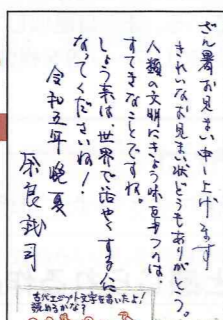 ざん暑お見まい申し上げます
きれいなお見まい状どうもありがとう。
人類の文明にきょう味をもつのは、
すてきなことですね。
しょう来は世界で活やくする人に
なってくださいね!
令和五年 晩夏
奈良誠司
古代エジプト文字を書いたよ!
読めるかな?